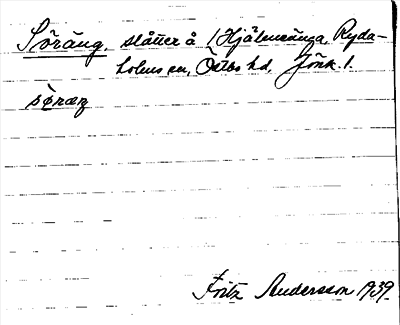 Söräng, slåtter å /Hjälmeänga, Ryda-
holms sn, Östbo hd, Jönk. l.
sòræŋ
Fritz Andersson 1939.